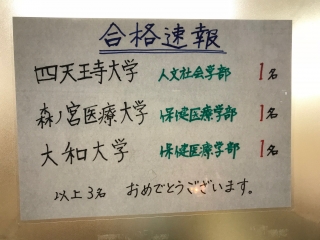 合格速報
四天王寺大学 人文社会学部 1名
森ノ宮医療大学 保健医療学部 1名
大和大学 保健医療学部 1名
以上3名 おめでとうございます。